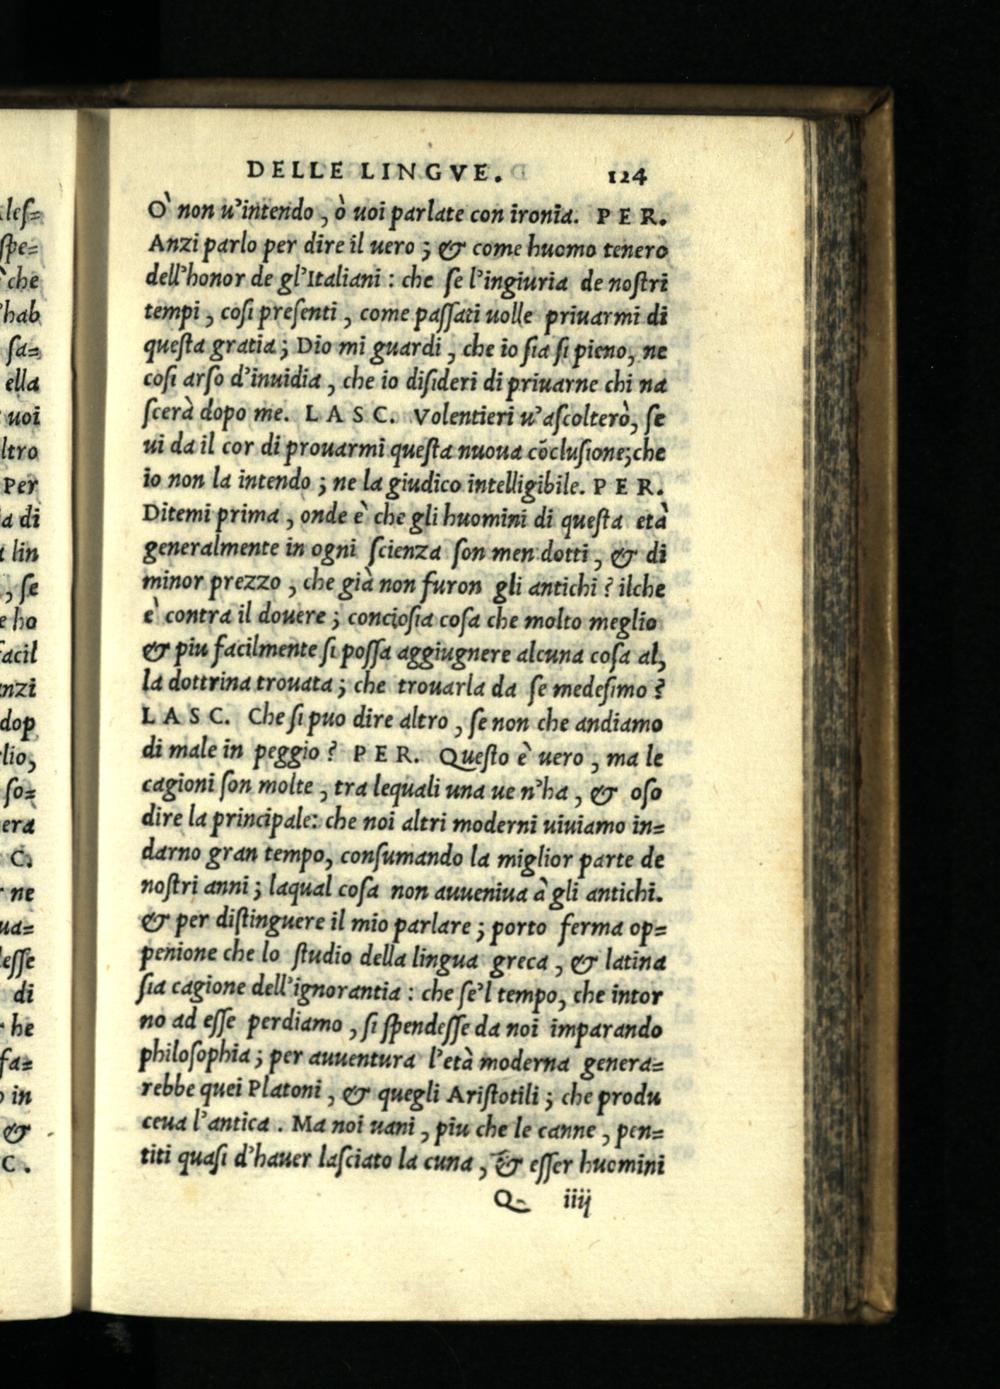 DELLE LINGVE. 124
Ò non u'intendo, ò uoi parlate con ironia. PER.
Anzi parlo per dire il uero; & come huomo tenero
dell'honor de gl'Italiani: che se l'ingiuria de nostri
tempi, cosi presenti, come passati uolle priuarmi di
questa gratia; Dio mi guardi, che io sia si pieno, ne
cosi arso d'inuidia, che io disideri di priuarne chi na
scerà dopo me. LASC. Volentieri u'ascolterò, se
ui da il cor di prouarmi questa nuoua cõclusione; che
io non la intendo; ne la giudico intelligibile. PER.
Ditemi prima, onde è che gli huomini di questa età
generalmente in ogni scienza son men dotti, & di
minor prezzo, che già non furon gli antichi? ilche
è contra il douere; conciosia cosa che molto meglio
& piu facilmente si possa aggiugnere alcuna cosa al,
la dottrina trouata; che trouarla da se medesimo?
LASC. Che si puo dire altro, se non che andiamo
di male in peggio? PER. Questo è uero, ma le
cagioni son molte, tra lequali una ue n'ha, & oso
dire la principale: che noi altri moderni uiuiamo in=
darno gran tempo, consumando la miglior parte de
nostri anni; laqual cosa non auueniua à gli antichi.
& per distinguere il mio parlare; porto ferma op=
penione che lo studio della lingua greca, & latina
sia cagione dell'ignorantia: che se'l tempo, che intor
no ad esse perdiamo, si spendesse da noi imparando
philosophia; per auuentura l'età moderna genera=
rebbe quei Platoni, & quegli Aristotili; che produ
ceua l'antica. Ma noi uani, piu che le canne, pen=
titi quasi d'hauer lasciato la cuna, & esser huomini
Q iiij
les=
spe=
che
hab
sa=
ella
uoi
ltro
Per
la di
lin
, se
e ho
facil
nzi
dop
lio,
so=
era
C.
ne
ua=
lesse
di
he
fa=
in
&
C.